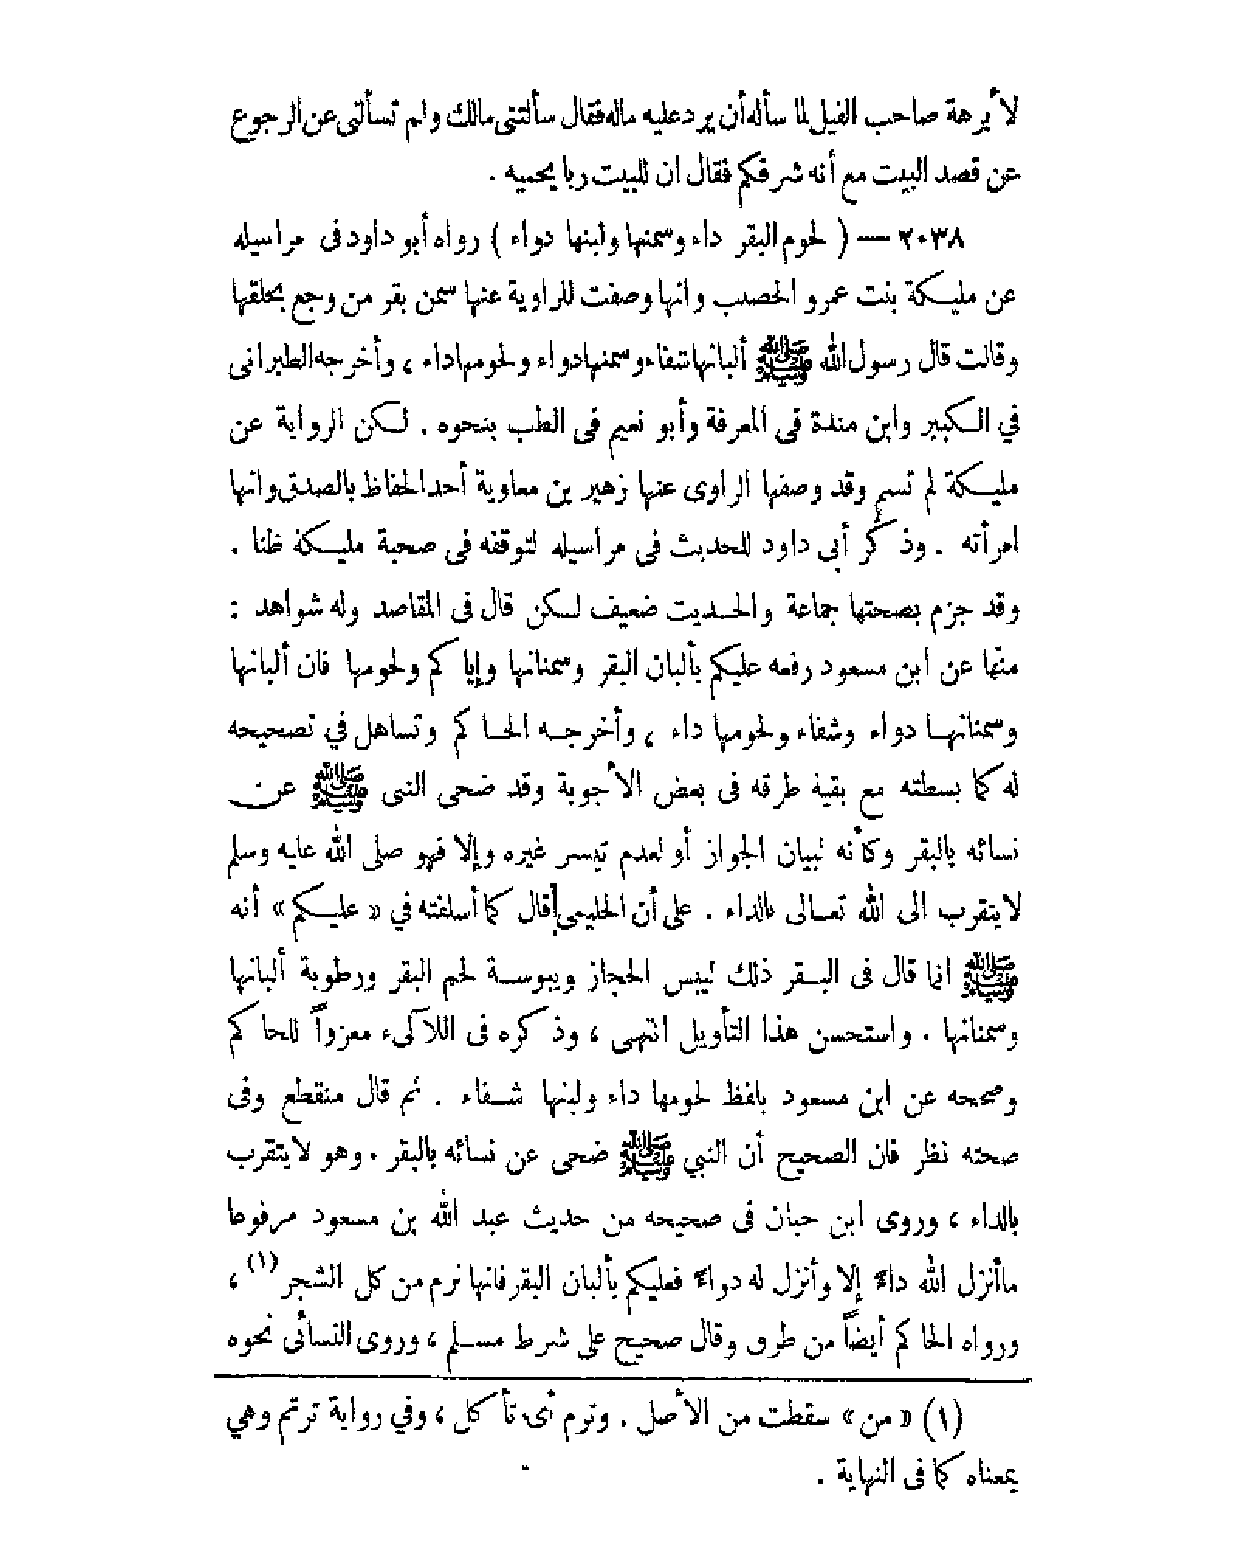 لأبرهة صاحب الفيل لما سأله أن يرد عليه ماله فقال سألتنى مالك ولم تسألنى عن الرجوع
عن قصد البيت مع أنه شرفكم فقال ان للبيت ربا يحميه .
٢٠٣٨ — ( لحوم البقر داء وسمنها ولبنها دواء ) رواه أبو داود فى مراسيله
عن مليكة بنت عمرو الخصيب وانها وصفت للراوية عنها سمن بقر من وجع بحلقها
وقالت قال رسول الله ﷺ ألبانها شفاء وسمنها دواء ولحومها داء ، وأخرجه الطبرانى
في الكبير وابن مندة فى المعرفة وأبو نعيم فى الطب بنحوه . لكن الرواية عن
مليكة لم تسم وقد وصفها الراوى عنها زهير بن معاوية أحد الحفاظ بالصدق وانها
امرأته . وذكر أبى داود للحديث فى مراسيله لتوقفه فى صحبة مليكة ظنا .
وقد جزم بصحتها جماعة والحديث ضعيف لكن قال فى المقاصد وله شواهد :
منها عن ابن مسعود رفعه عليكم بألبان البقر وسمنانها وإياكم ولحومها فان ألبانها
وسمنانها دواء وشفاء ولحومها داء ، وأخرجه الحاكم وتساهل في تصحيحه
له كما بسطته مع بقية طرقه فى بعض الأجوبة وقد ضحى النبى ﷺ عن
نسائه بالبقر وكأنه لبيان الجواز أو لعدم تيسر غيره وإلا فهو صلى الله عليه وسلم
لا يتقرب الى الله تعالى بالداء . على أن الحليمى قال كما أسلفته في « عليكم » أنه
ﷺ انما قال فى البقر ذلك ليبس الحجاز ويبوسة لحم البقر ورطوبة ألبانها
وسمنانها . واستحسن هذا التأويل انتهى ، وذكره فى اللآلىء معزواً للحاكم
وصححه عن ابن مسعود بلفظ لحومها داء ولبنها شفاء . ثم قال منقطع وفى
صحته نظر فان الصحيح أن النبي ﷺ ضحى عن نسائه بالبقر . وهو لا يتقرب
بالداء ، وروى ابن حبان فى صحيحه من حديث عبد الله بن مسعود مرفوعا
ما أنزل الله داءً إلا وأنزل له دواءً فعليكم بألبان البقر فانها ترم من كل الشجر (١) ،
ورواه الحاكم أيضاً من طرق وقال صحيح على شرط مسلم ، وروى النسائى نحوه
(١) « من » سقطت من الأصل . وترم أى تأكل ، وفي رواية ترتم وهي
بمعناه كما فى النهاية .